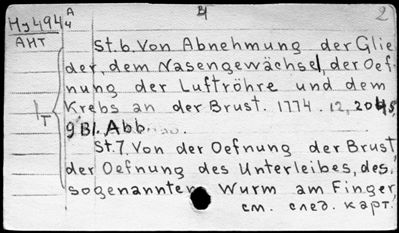 Му494 А/4 4 2
АНТ St.6. Von Abnehmung der Glie
der, dem Nasengewächsel, der Oef-
nung der Luftröhre und dem
Krebs an der Brust. 1774. 12, 204 S,
9 Bl. Abb.
St.7. Von der Oefnung der Brust,
der Oefnung des Unterleibes, des
sogenannten Wurm am Finger
см. след. карт.